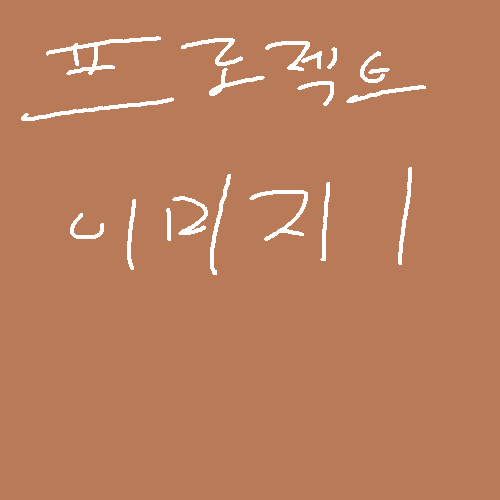 프로젝트
이미지 1